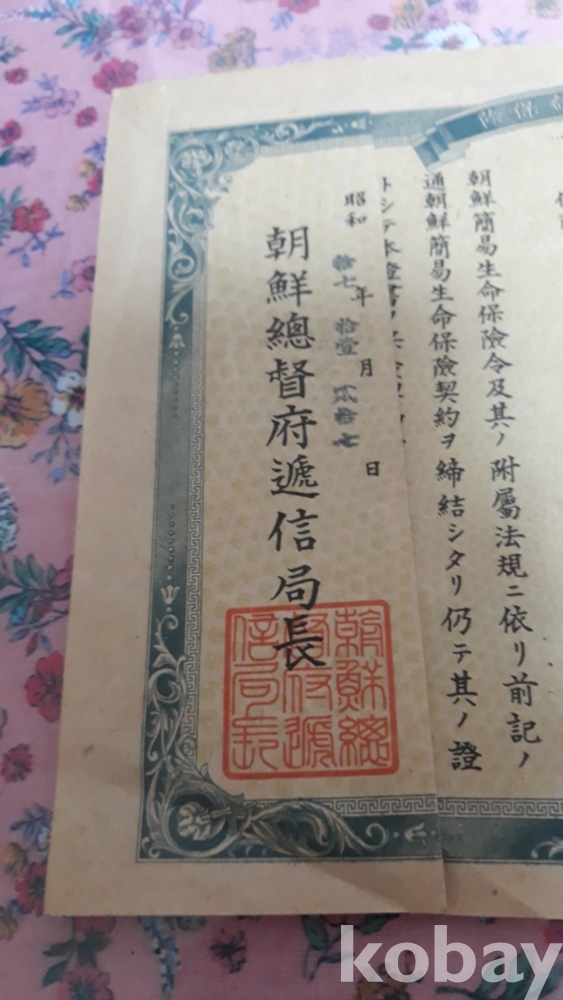 保險
朝鮮簡易生命保險令及其ノ附屬法規ニ依リ前記ノ
通朝鮮簡易生命保險契約ヲ締結シタリ仍テ其ノ證
トシテ本證書
昭和拾七年拾壹月貳拾七日
朝鮮總督府遞信局長
朝鮮總
督府遞
信局長
kobay